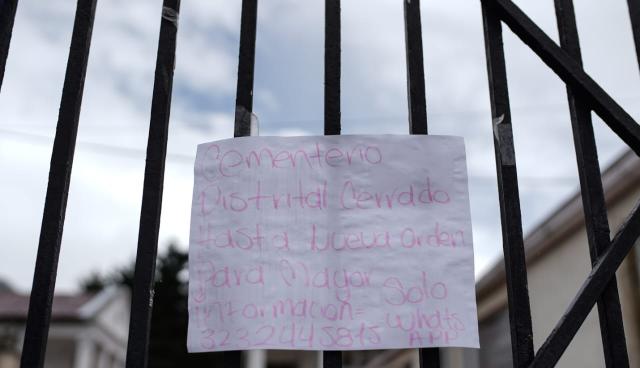 Cementerio
Distrital Cerrado
Hasta Nueva orden
Para Mayor Solo
Informacion= whats
3232445815 APP